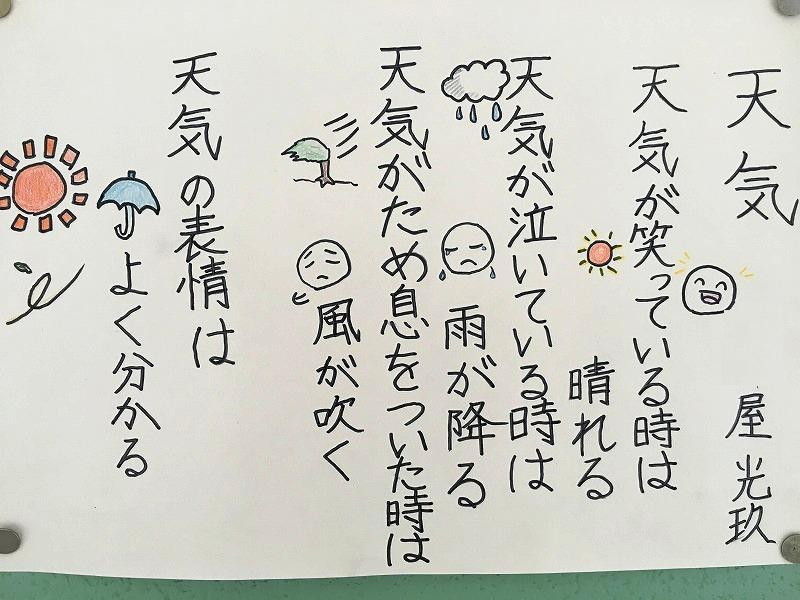 天気
屋光玖
天気が笑っている時は
晴れる
天気が泣いている時は
雨が降る
天気がため息をついた時は
風が吹く
天気の表情は
よく分かる